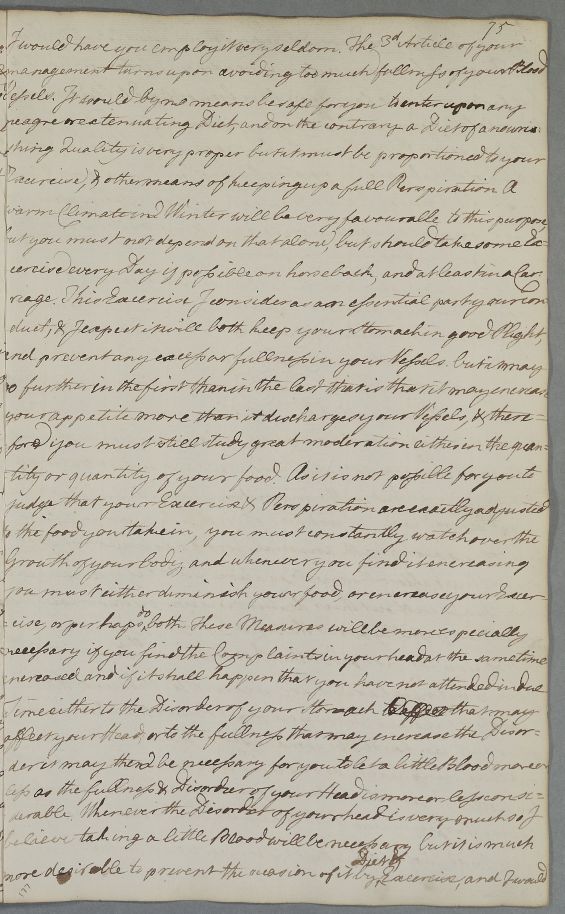 75
I would have you employ it very seldom. The 3d Article of your
management turns upon avoiding too much fullness of your Blood
Vessels. It would by no means be safe for you to enter upon any
meagre or extenuating Diet, and on the contrary a Diet of a nouris=
=hing Quality is very proper but it must be proportioned to your
Excercise, & other means of keeping up a full Perspiration A
warm Climate in Winter will be very favourable to this purpose,
but you must not depend on that alone, but should take some Ex=
cercise every Day if possible on horseback, and at least in a Car
riage. This Excercise I consider as an essential part of your con
duct, & I expect it will both keep your Stomach in good Plight,
and prevent any excess or fullness in your Vessels. but it may
go further in the first than in the last that is that it may encreas
your appetite more than it discharges your Vessels, & there=
fore you must still study great moderation either in the quan=
tity or quantity of your food. As it is not possible for you to
judge that your Excercise & Perspiration are exactly adjusted
to the food you take in, you must constantly watch over the
Growth of your body and whenever you find it encreasing
you must either diminish your food or encrease your Excer
cise, or perhaps do both These Measures will be more especially
necessary if you find the Complaints in your head at the same time
increased and if it shall happen that you have not attended in due
Time either to the Disorder of your Stomach that may
affect your Head, or to the fullness that may encrease the Disor=
der it may then be necessary for you to let a little Blood more or
less as the fullness & Disorder of your Head is more or less consi=
derable, Whenever the Disorder of your head is very much so I
believe taking a little Blood will be necessary but it is much
more desirable to prevent the occasion of it by Diet & Excercise, and I would
177